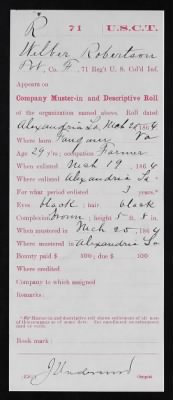 R 71 U.S.C.T.
Wilber Robertson
Pvt, Co. F, 71 Reg't U. S. Col'd Inf.
Appears on
Company Muster-in and Descriptive Roll
of the organization named above. Roll dated
Alexandria La, Mch 20 1864
Where born Fauquier Va
Age 29 y'rs; occupation Farmer
When enlisted Mch 19, 1864
Where enlisted Alexandria La
For what period enlisted 3 years.*
Eyes black; hair black
Complexion brown; height 5 ft. 8 in.
When mustered in Mch 20, 1864
Where mustered in Alexandria La
Bounty paid $ 100; due $ 100
Where credited
Company to which assigned
Remarks:
Book mark:
J Underwood
Copyist.